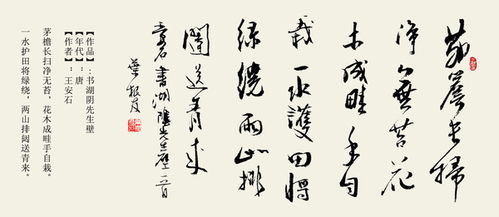 茅簷長掃
淨無苔花
木成畦手自
栽一水護田將
綠繞兩山排
闥送青來
安石書湖陰先生壁一首
葉根友
【作品】:书湖阴先生壁
【年代】:唐
【作者】:王安石
茅檐长扫净无苔,花木成畦手自栽。
一水护田将绿绕,两山排闼送青来。